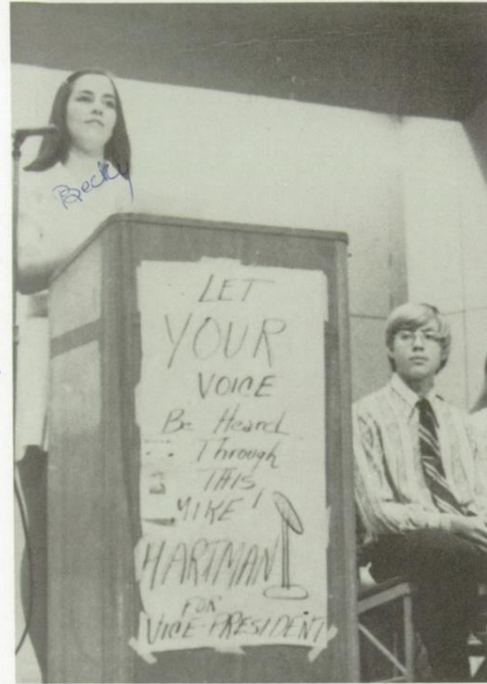 Becky
LET
YOUR
VOICE
Be Heard
Through
THIS
MIKE!
HARTMAN
FOR
VICE-PRESIDENT